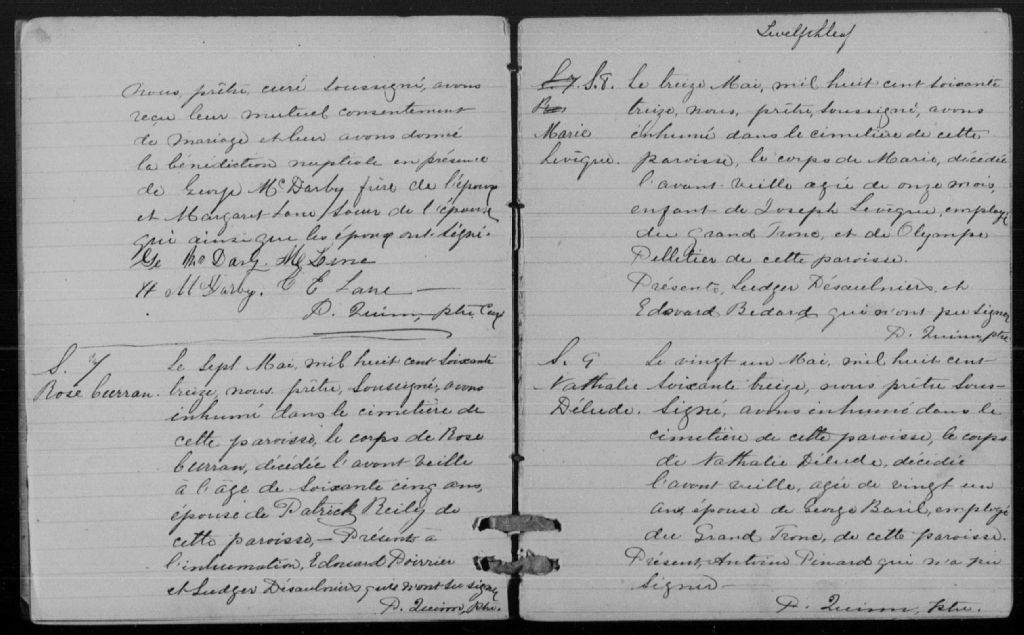 nous, prêtre, curé soussigné, avons
reçu leur mutuel consentement
de mariage et leur avons donné
la bénédiction nuptiale en présence
de George McDarby frère de l'époux
et Margaret Lane soeur de l'épouse
qui ainsi que les époux ont signé.
Ge McDarby M Lane
H McDarby. C E Lane
P. Quinn, ptre, Curé
S. 7
Rose Curran.
Le Sept Mai, mil huit cent soixante
treize, nous, prêtre, soussigné, avons
inhumé dans le cimetière de
cette paroisse, le corps de Rose
Curran, décédée l'avant veille
à l'âge de soixante cinq ans,
épouse de Patrick Reily de
cette paroisse, — Présents à
l'inhumation, Edouard Poirrier
et Ludger Désaulniers qui n'ont su signer
P. Quinn, ptre.
Twelfth leaf
S. 7. S. 8.
Marie
Levêque.
Le treize Mai, mil huit cent soixante
treize, nous, prêtre, soussigné, avons
inhumé dans le cimetière de cette
paroisse, le corps de Marie, décédée
l'avant-veille agée de onze mois,
enfant de Joseph Levêque, employé
du Grand Tronc, et de Olympe
Pelletier de cette paroisse.
Présents, Ludger Désaulniers, et
Edouard Bedard qui n'ont pu signer
P. Quinn, ptre
S. 9
Nathalie
Délude.
Le vingt un Mai, mil huit cent
soixante treize, nous prêtre sous-
signé, avons inhumé dans le
cimetière de cette paroisse, le corps
de Nathalie Délude, décédée
l'avant veille, agée de vingt un
ans, épouse de George Baril, employé
du Grand Tronc, de cette paroisse.
Présent, Antoine Pinard qui n'a pu
signer —
P. Quinn, ptre.